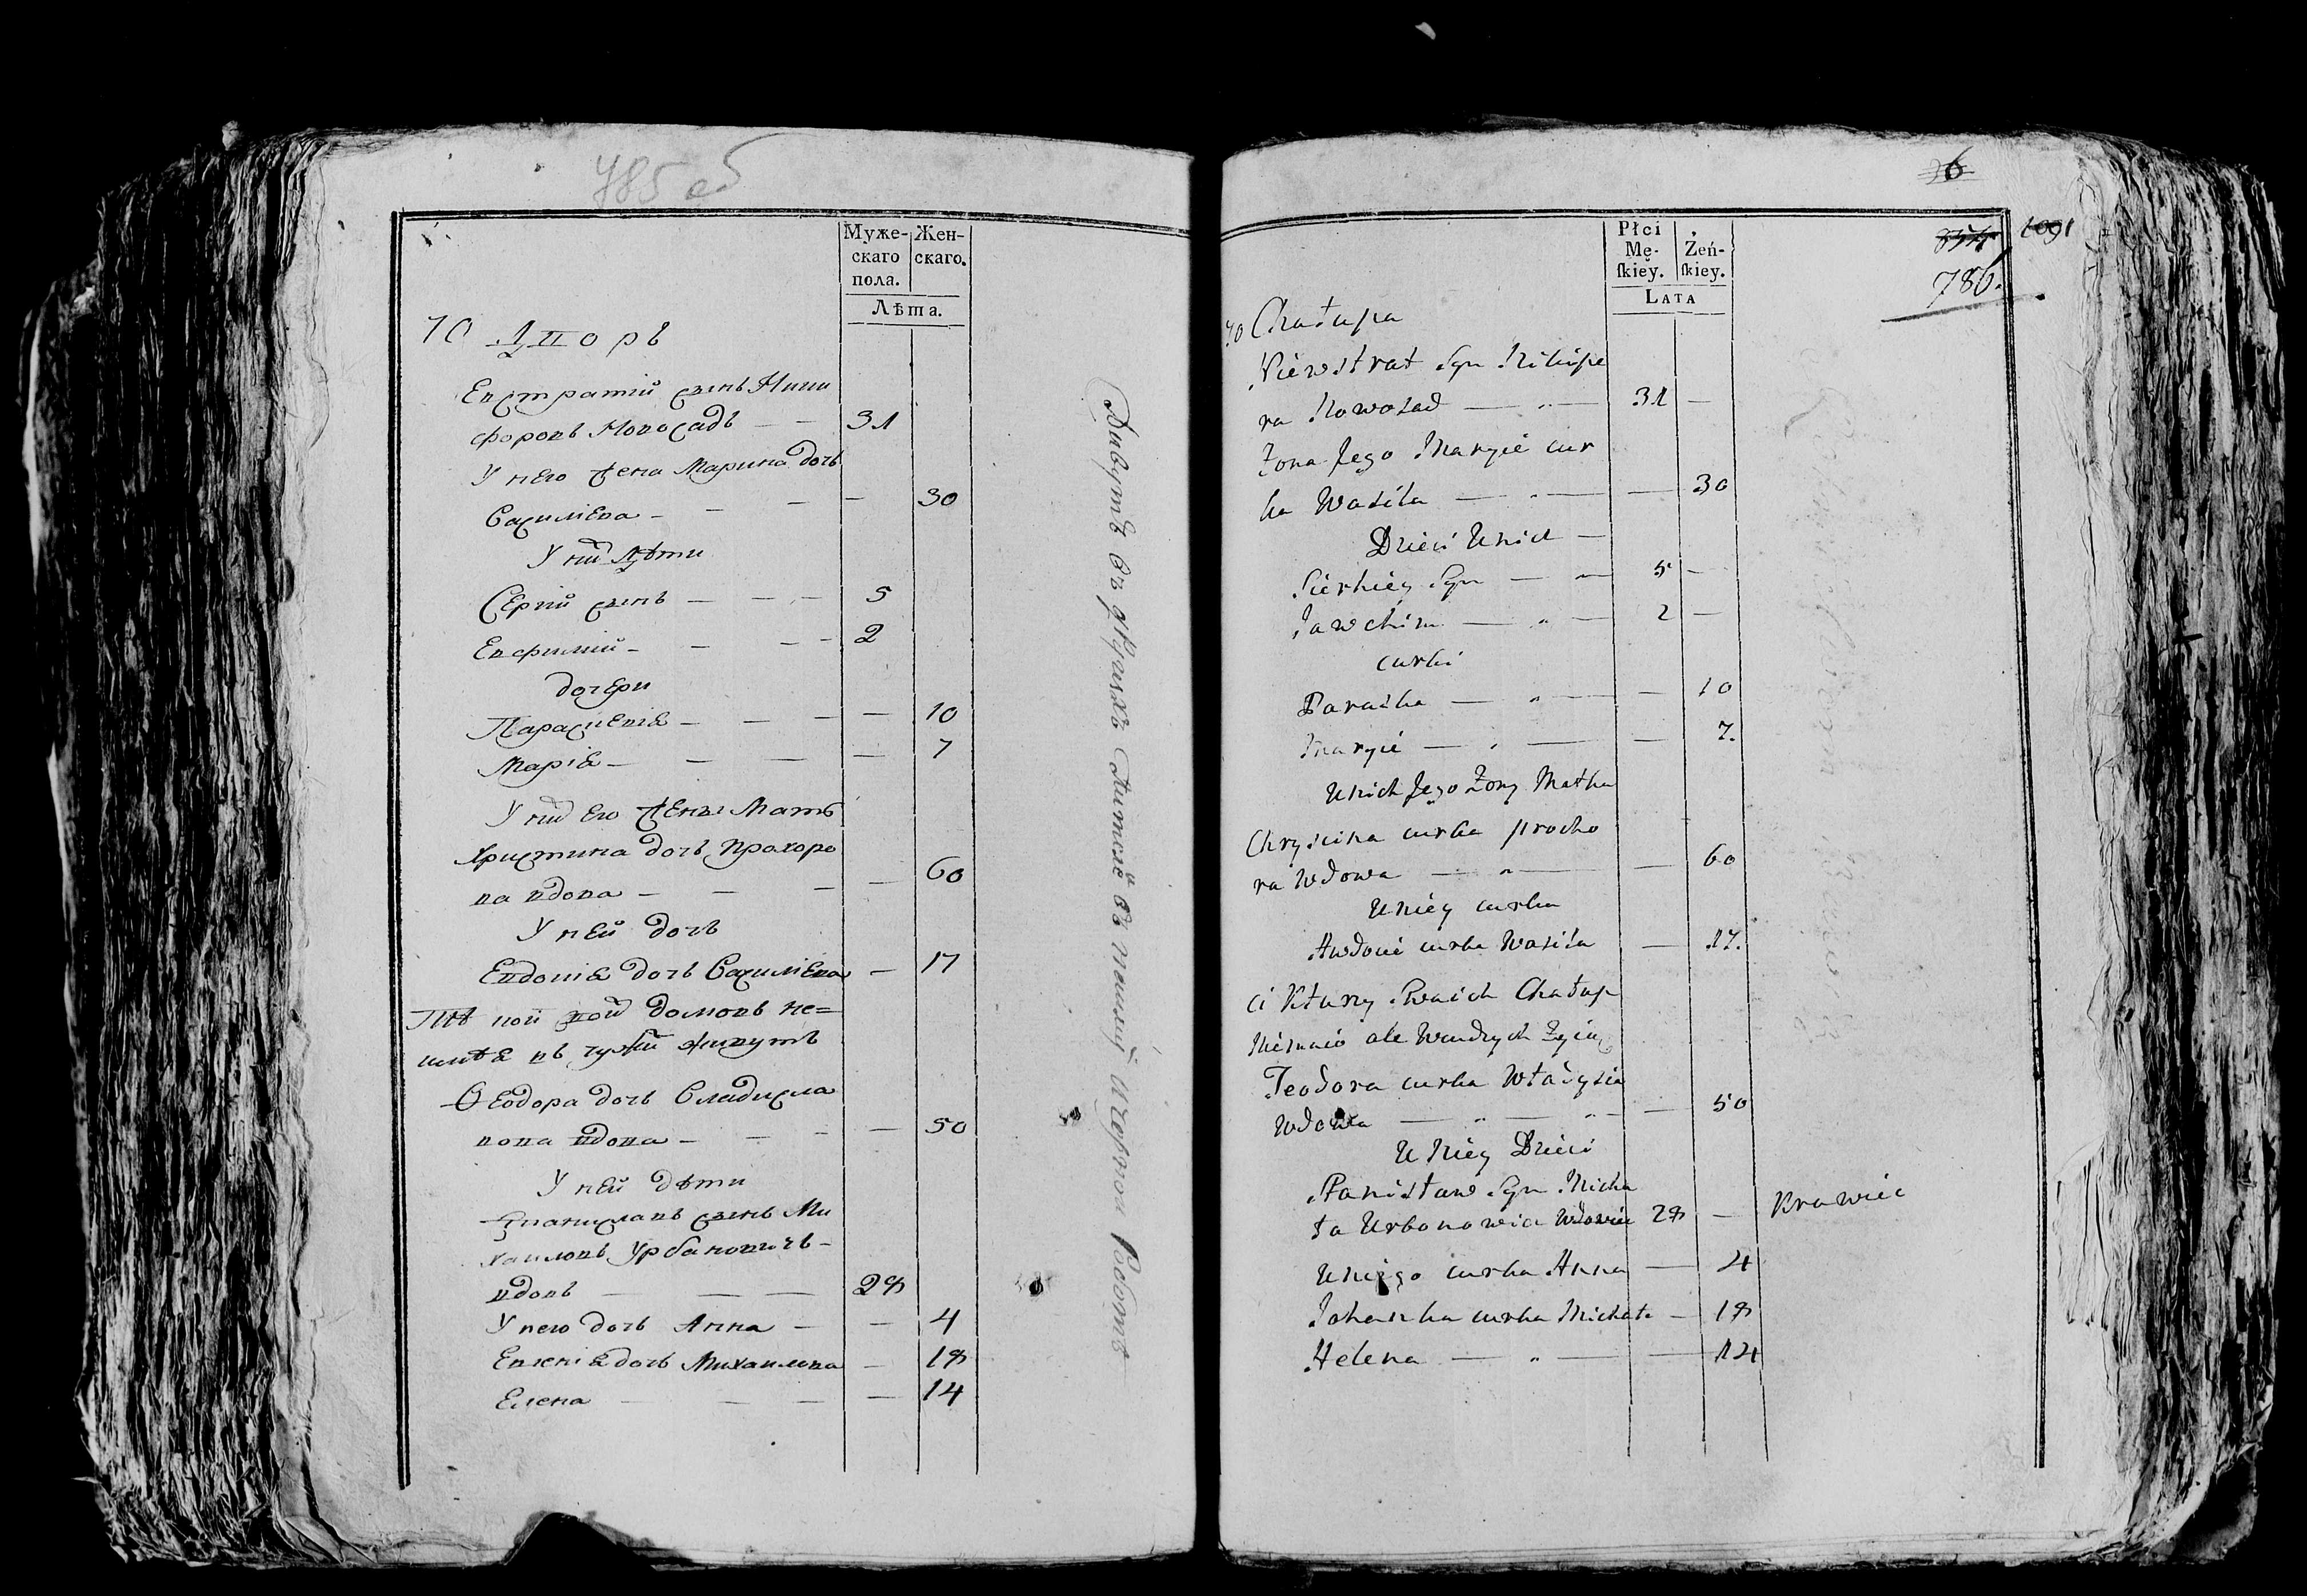 785 об
Муже-
скаго
пола.
Жен-
скаго.
Лѣта.
10 Дворъ
Евстратій сынъ Ники
форовъ Новосадъ — — 31
У него жена Марина дочь
Василіева — — — — 30
У них дѣти
Сергий сынъ — — — 5
Евфимий — — — — 2
дочери
Параскевіа — — — — 10
Маріа — — — — 7
У них его жены Мать
Христина дочь Прохоро
ва вдова — — — — 60
У ней дочь
Евдокіа дочь Василіева — 17
домовъ не=
живутъ
Ѳеодора дочь Владисла
вова вдова — — — — 50
У ней дѣти
Станиславъ сынъ Ми
хаиловъ Урбановичъ —
вдовъ — — — 28
У него дочь Анна — — 4
Евгеніа дочь Михаилова — 18
Елена — — — — 14
6
854
1091
786.
Płci
Mę-
ſkiey.
Żeń-
ſkiey.
LATA
10 Chałupa
Niewstrat Syn Nikipe
ra Nowosad — „ — 31 —
Żona Jego Maryie cur
ka Wasila — „ — — 30
Dzieci Unich —
Sierhiey Syn — „ — 5 —
Jawchim — „ — 2 —
curki
Paraska — „ — — 10
Maryie — „ — — 7.
Unich Jego Żony Matka
Chryscina curka procho
ra Wdowa — „ — — 60
Uniey curka
Awdocie curka Wasila — 17.
ci Kturzy Swoich Chałup
Niemaio ale Wcudzych Żyią
Teodora curka Władysła
Wdowa — „ — „ — — 50
U Niey Dzieci
Stanisław Syn Micha
ła Urbonowicz Wdowiec 28 — Krawiec
Uniego curka Anna — 4
Johanka curka Michała — 18
Helena — „ — — 14